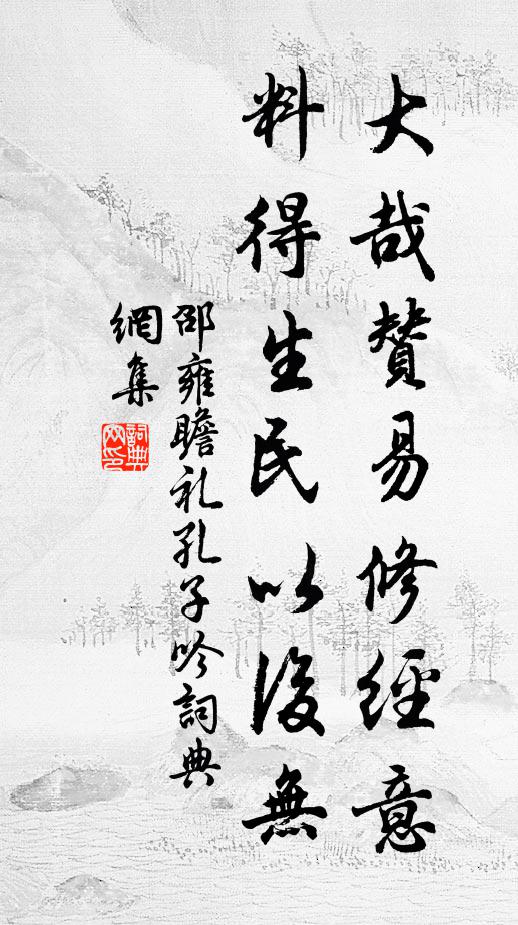 大哉贊易修經意
料得生民以後無
邵雍瞻礼孔子吟詞典
網集
詞典